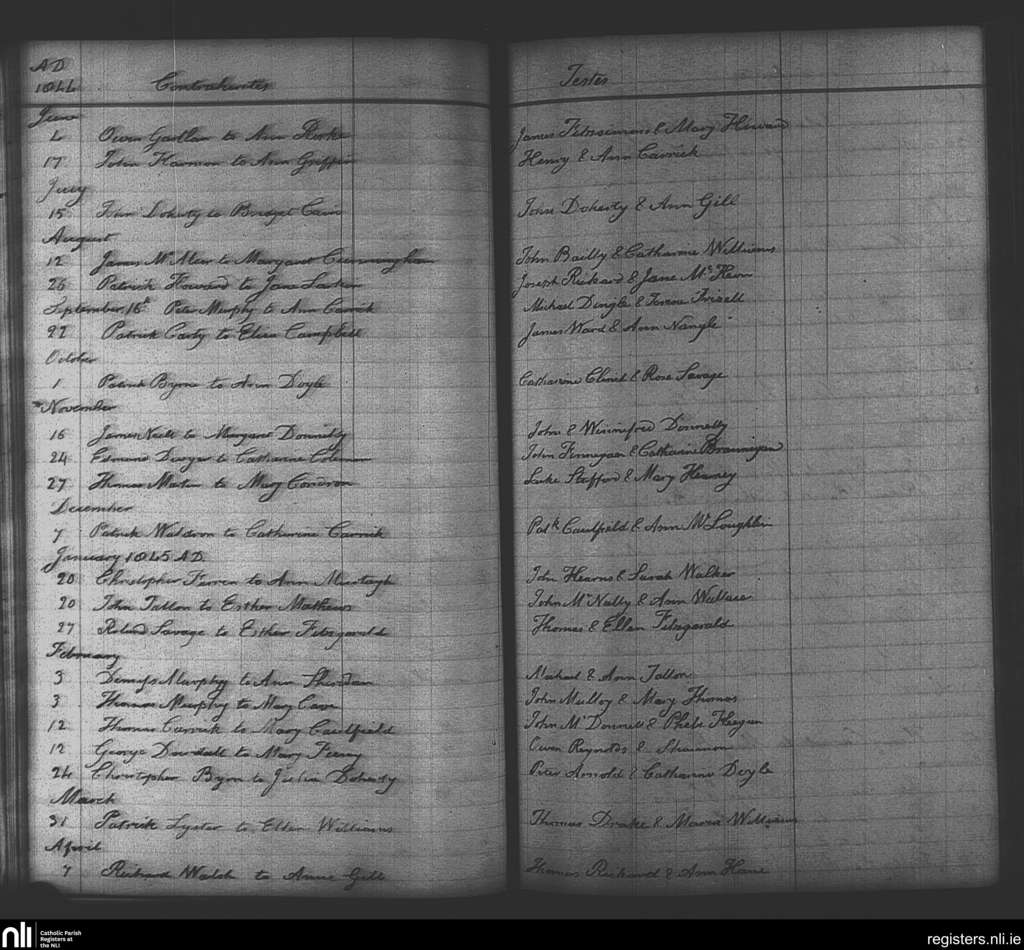 AD
1844 Contrahentes Testes
June
4 Owen Gartlan to Ann Rorke James Fitzsimmons & Mary Howard
17 John Harmon to Ann Griffin Henry & Ann Carrick
July
15 John Doherty to Bridget Cain John Doherty & Ann Gill
August
12 James McAleer to Margaret Cunningham John Bailly & Catharine Williams
26 Patrick Howard to Jane Larkin Joseph Rickard & Jane McKeon
September 16th Peter Murphy to Ann Carrick Michael Dingle & Terese Frizell
22 Patrick Carty to Eliza Campbell James Ward & Ann Nangle
October
1 Patrick Byrne to Ann Doyle Catharine & Rose Savage
November
16 James Neill to Margaret Donnelly John & Winnefred Donnelly
24 Edmund Dwyer to Catharine Coleman John Finnegan & Catharine Brannigan
27 Thomas Martin to Mary Condron Luke Stafford & Mary Kearney
December
7 Patrick Waldron to Catharine Carrick Patk Caulfield & Ann McLoughlin
January 1845 AD
20 Christopher Farren to Ann Murtagh John Hearns & Sarah Walker
20 John Tallon to Esther Mathews John McNally & Ann Wallace
27 Roland Savage to Esther Fitzgerald Thomas & Ellen Fitzgerald
February
3 Dennis Murphy to Ann Sheridan Michael & Ann Tallon
3 Thomas Murphy to Mary Cave John Mulloy & Mary Thomas
12 Thomas Carrick to Mary Caulfield John McDonnell & Phebe Keegan
12 George Dowdall to Mary Feeny Owen Reynolds & Shannon
24 Christopher Byrn to Julia Doherty Peter Arnold & Catharine Doyle
March
31 Patrick Lyster to Ellen Williams Thomas Drake & Maria Williams
April
7 Richard Walsh to Anne Gill Thomas Rickard & Ann Kane
nli Catholic Parish
Registers at
the NLI
registers.nli.ie